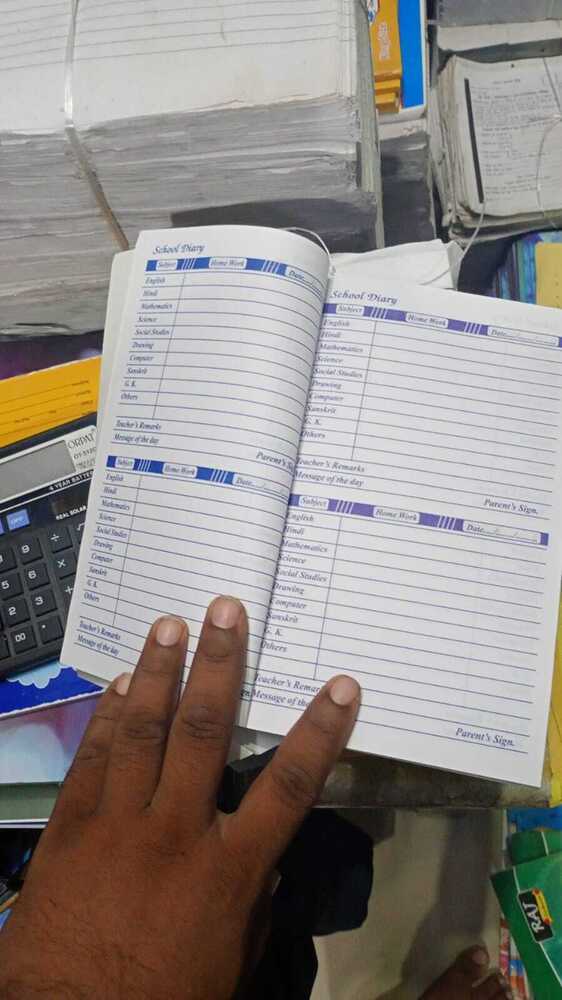 School Diary
Subject Home Work Date
English
Hindi
Mathematics
Science
Social Studies
Drawing
Computer
Sanskrit
G. K.
Others
Teacher's Remarks
Message of the day
Parent's Sign.
Subject Home Work Date
English
Hindi
Mathematics
Science
Social Studies
Drawing
Computer
Sanskrit
G. K.
Others
Teacher's Remarks
Message of the day
School Diary
Subject Home Work Date
English
Hindi
Mathematics
Science
Social Studies
Drawing
Computer
Sanskrit
G. K.
Others
Teacher's Remarks
Message of the day
Parent's Sign.
Subject Home Work Date
English
Hindi
Mathematics
Science
Social Studies
Drawing
Computer
Sanskrit
G. K.
Others
Teacher's Remar
Message of the
Parent's Sign.
ORPAT
4 YEAR BATTE
REAL SOLAR
OFF
9 ÷
5 6 ×
2 3
00
RAJ